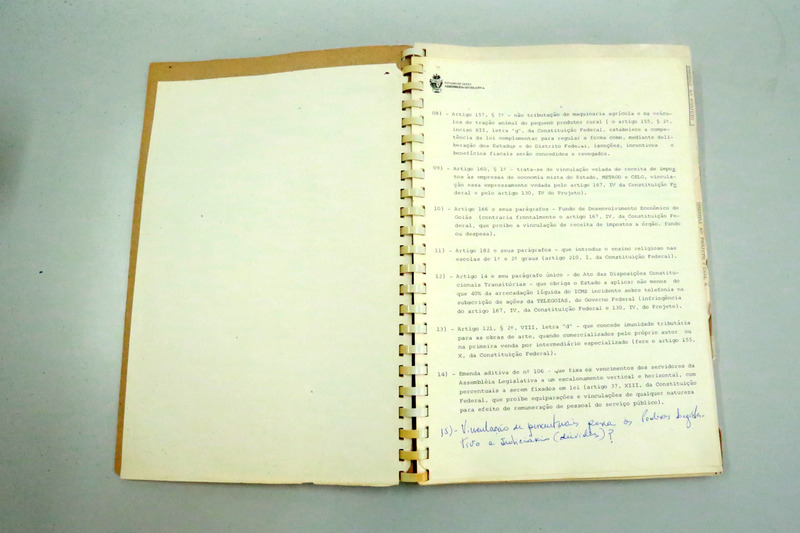 ESTADO DE GOIÁS
ASSEMBLEIA LEGISLATIVA
08) - Artigo 157, § 7º - não tributação de maquinaria agrícola e os veícu-
los de tração animal do pequeno produtor rural ( o artigo 155, § 2º,
inciso XII, letra "g", da Constituição Federal, estabelece a compe-
tência da lei complementar para regular a forma como, mediante deli-
beração dos Estados e do Distrito Federal, isenções, incentivos e
benefícios fiscais serão concedidos e revogados.
09) - Artigo 160, § 1º - trata-se de vinculação velada de receita de impos
tos às empresas de economia mista do Estado, METAGO e CELG, vincula-
ção essa expressamente vedada pelo artigo 167, IV da Constituição Fe
deral e pelo artigo 130, IV do Projeto).
10) - Artigo 166 e seus parágrafos - Fundo de Desenvolvimento Econômico de
Goiás (contraria frontalmente o artigo 167, IV, da Constituição Fe-
deral, que proibe a vinculação de receita de impostos a órgão, fundo
ou despesa).
11) - Artigo 182 e seus parágrafos - que introduz o ensino religioso nas
escolas de 1º e 2º graus (artigo 210, I, da Constituição Federal).
12) - Artigo 14 e seu parágrafo único - do Ato das Disposições Constitu-
cionais Transitórias - que obriga o Estado a aplicar não menos do
que 40% da arrecadação líquida do ICMS incidente sobre telefonia na
subscrição de ações da TELEGOIÁS, do Governo Federal (infringência
do artigo 167, IV, da Constituição Federal e 130, IV, do Projeto).
13) - Artigo 121, § 2º, VIII, letra "d" - que concede imunidade tributária
para as obras de arte, quando comercializados pelo próprio autor ou
na primeira venda por intermediário especializado (fere o artigo 155,
X, da Constituição Federal).
14) - Emenda aditiva de nº 106 - que fixa os vencimentos dos servidores da
Assembléia Legislativa a um escalonamento vertical e horizontal, com
percentuais a serem fixados em lei (artigo 37, XIII, da Constituição
Federal, que proibe equiparações e vinculações de qualquer natureza
para efeito de remuneração de pessoal do serviço público).
15) - Vinculação de percentuais para os Poderes Legisla-
tivo e Judiciário (dúvidas)?